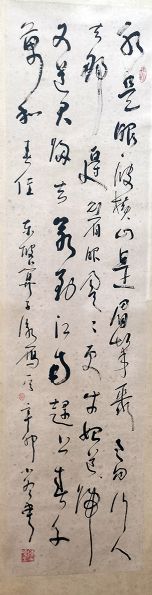 水是眼波横山是眉峰聚欲问行人
去那邊眉眼盈盈處才始送春歸
又送君歸去若到江南趕上春千
萬和春住 卜算子 辛卯